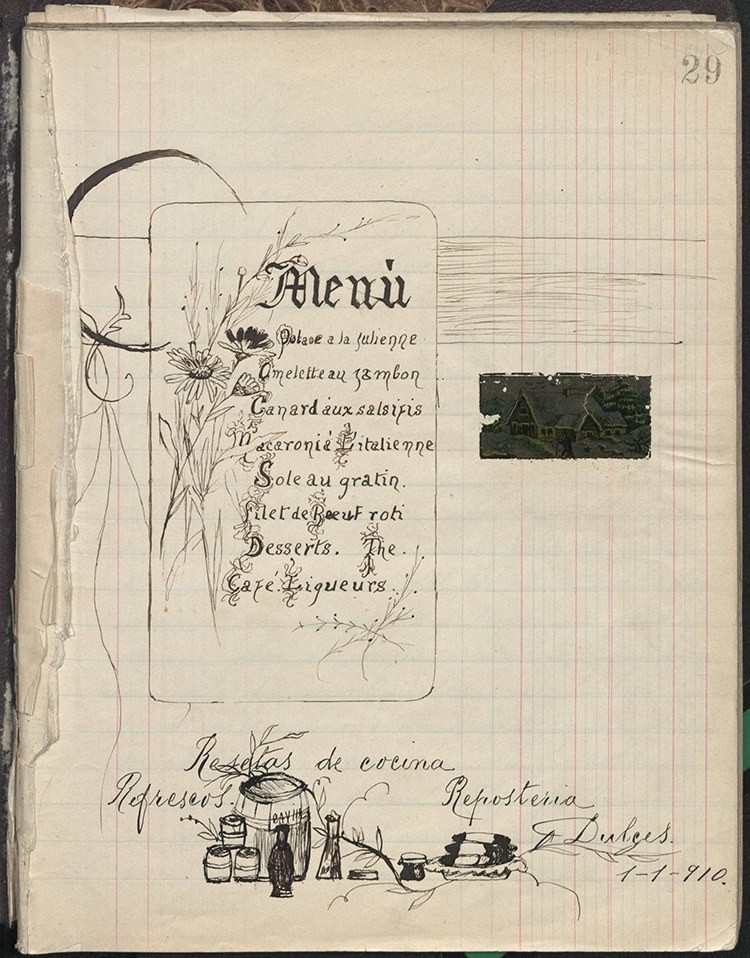 29
Menù
Potage a la Julienne
Omelette au zambon
Canard aux salsifis
Macaroni á L'italienne
Sole au gratin.
Filet de Bœuf roti
Desserts. The.
Café. Liqueurs.
Resetas de cocina
Refrescos. Reposteria
y Dulces.
1-1-910.